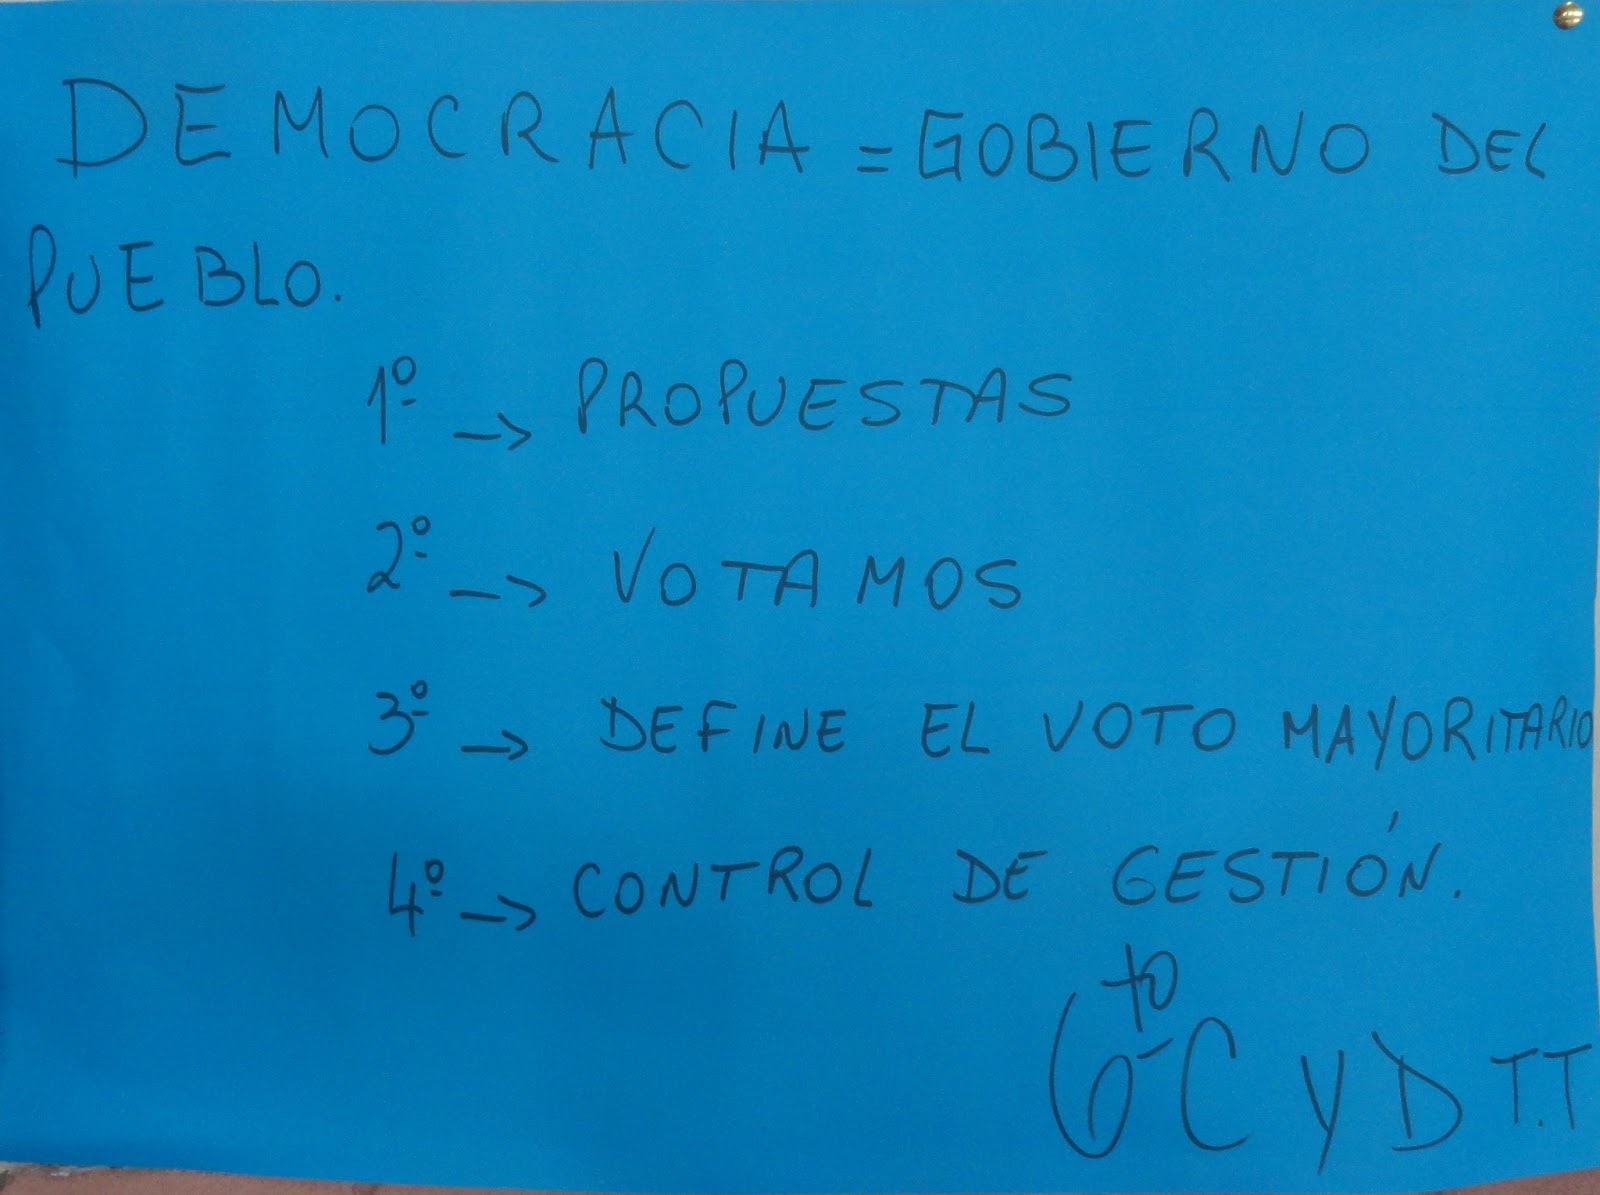 DEMOCRACIA = GOBIERNO DEL
PUEBLO.
1º -> PROPUESTAS
2º -> VOTAMOS
3º -> DEFINE EL VOTO MAYORITARIO
4º -> CONTROL DE GESTIÓN.
6to C y D T.T